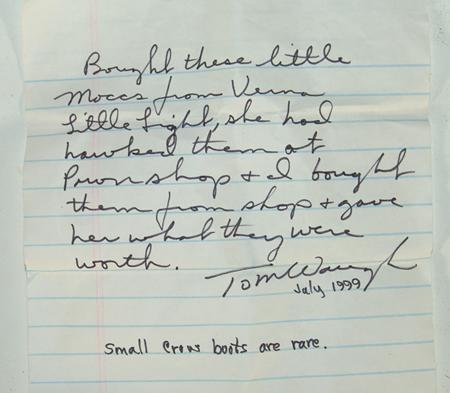 Bought these little
Moccs from Verna
Little Light, she had
hawked them at
Pwn shop & I bought
them from shop & gave
her what they were
worth.
Tom Waugh
July 1999
Small Crow boots are rare.